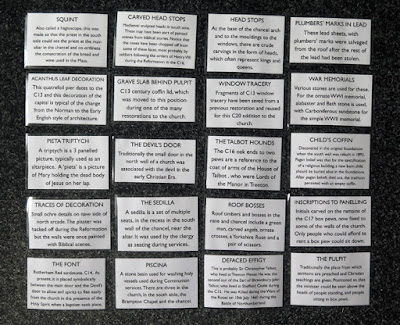 SQUINT
Also called a hagioscope, this was
made so that the priest in the south
aisle could see the priest at the main
altar in the chancel and so ordinate
the consecration of the bread and
wine used in the Mass.
CARVED HEAD STOPS
Mediaeval sculpted heads in south aisle.
These may have been part of painted
scenes from biblical stories. Notice that
the noses have been chopped off from
some of these faces, most probably by
soldiers following orders of Henry VIII
during the Reformation in the C16.
HEAD STOPS
At the base of the chancel arch
and to the mouldings to the
windows, there are crude
carvings in the form of heads,
which often represent kings and
queens.
PLUMBERS' MARKS IN LEAD
These lead sheets, with
plumbers' marks were salvaged
from the roof after the rest of
the lead had been stolen.
ACANTHUS LEAF DECORATION
This quatrefoil pier dates to the
C13 and this decoration of the
capital is typical of the change
from the Norman to the Early
English style of architecture.
GRAVE SLAB BEHIND PULPIT
C13 century coffin lid, which
was moved to this position
during one of the many
restorations to the church.
WINDOW TRACERY
Fragments of C13 window
tracery have been saved from a
previous restoration and reused
for this C20 addition to the
church.
WAR MEMORIALS
Various stones are used for these.
For the ornate WWI memorial,
alabaster and Bath stone is used,
with Carboniferous sandstone for
the simple WWII memorial.
PIETA TRIPTYCH
A triptych is a 3 panelled
picture, typically used as an
altarpiece. A 'pieta' is a picture
of Mary holding the dead body
of Jesus on her lap.
THE DEVIL'S DOOR
Traditionally the small door in the
north wall of a church was
associated with the devil in the
early Christian Era.
THE TALBOT HOUNDS
The C16 oak ends to two
pews are a reference to the
coat of arms of the House of
Talbot, who were Lords of the
Manor in Treeton.
CHILD'S COFFIN
Discovered in the original foundations
when the south wall was rebuilt in 1892.
Pagan belief was that for the sanctification
of a religious building, a new born child
should be buried alive in the foundations.
After pagan beliefs died out, the practice
persisted with an empty coffin.
TRACES OF DECORATION
Small ochre details on nave side of
north arcade. The plaster was
hacked off during the Reformation
but the walls were once painted
with Biblical scenes.
THE SEDILLA
A sedilla is a set of multiple
seats, in the recess in the south
wall of the chancel, near the
altar. It was used by the clergy
as seating during services.
ROOF BOSSES
Roof timbers and bosses in the
nave and chancel include a green
man, carved angels, ornate
crosses, a Yorkshire Rose and a
pair of scissors.
INSCRIPTIONS TO PANELLING
Initials carved on the remains of
the C17 box pews, now fixed to
some of the walls of the church.
Only people who could afford to
rent a box pew could sit down.
THE FONT
Rotherham Red sandstone, C14. At
present, it is placed symbolically
between the main door and the Devil's
door to allow evil spirits to flee easily
from the church in the presence of the
Holy Spirit when a baptism took place.
PISCINA
A stone basin used for washing holy
vessels used during Communion
services There are three in the
church, in the south aisle, the
Brampton Chapel and the chancel.
DEFACED EFFIGY
This is probably Sir Christopher Talbot,
who lived in Treeton Manor. He was the
second son of the Earl of Shrewsbury John
Talbot who lived in Sheffield Castle during
the C15. He was killed during the Wars of
the Roses on 10th July 1460 during the
Battle of Northampton.
THE PULPIT
Traditionally the place from which
sermons are preached and Christian
teachings are given. Positioned so that
the minister could be seen above the
heads of people standing, and people
sitting in box pews.